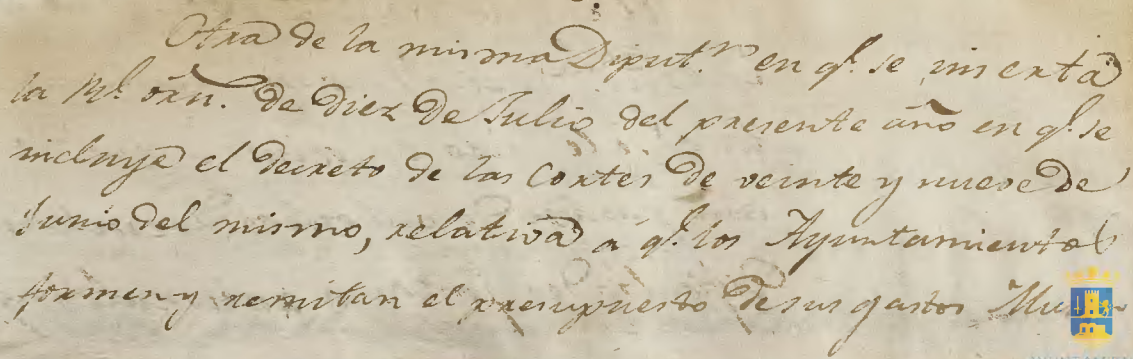 Otra de la misma Diput.n en q.e se inserta
la Rl. orn. de diez de Julio del presente año en q.e se
incluye el decreto de las Cortes de veinte y nueve de
Junio del mismo, relativa á q.e los Ayuntamientos
formen y remitan el presupuesto de sus gastos Mu